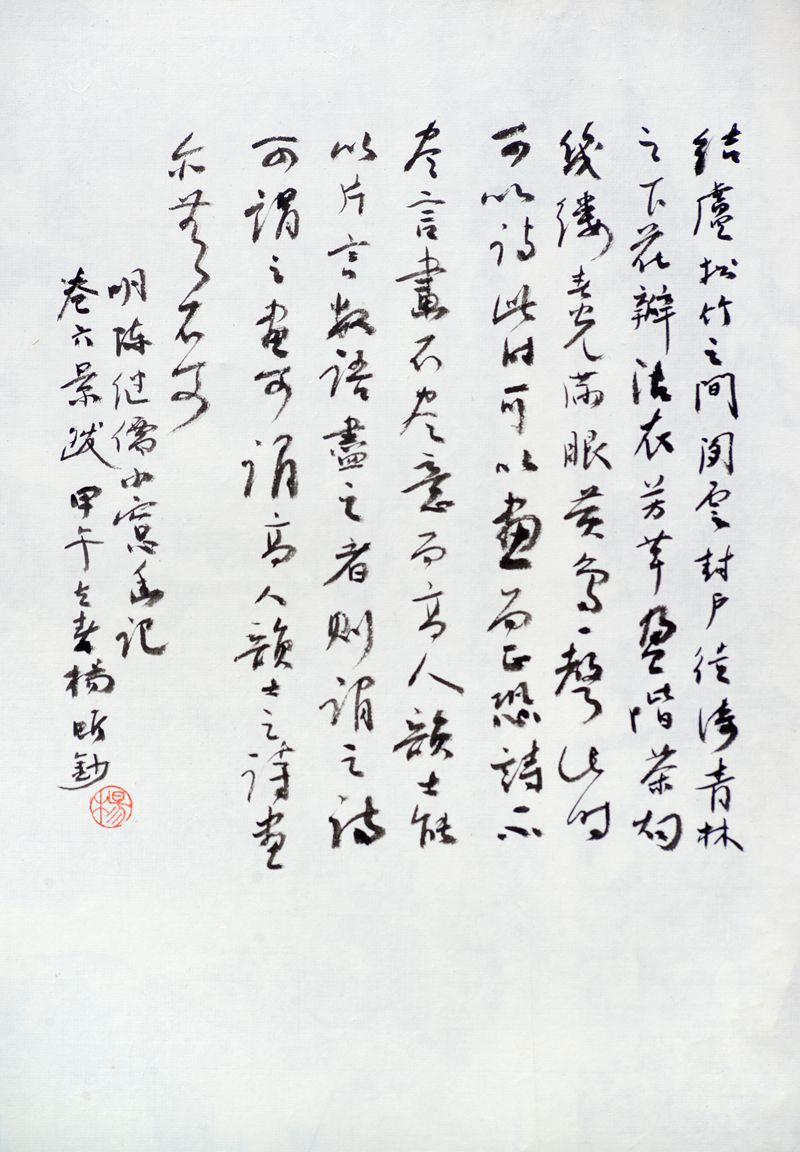 结廬松竹之间闲雲封户徙倚青林
之下花瓣沾衣芳草盈階茶烟
幾缕春光满眼黄鸟一聲此时
可以诗此时可以画而正恐詩不
尽言畫不尽意而高人韻士能
以片言数语盡之者则谓之诗
可謂之画可谓高人韻士之詩画
亦無不可
明陈继儒小窗幽记
卷六景跋甲午立春楊昕鈔
楊